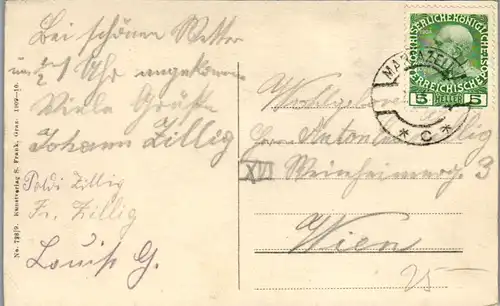 Bei schönem Wetter
um ½1 Uhr angekommen
Viele Grüße
Johann Zillig
Poldi Zillig
Fr. Zillig
Louis G.
No. 728/9. Kunstverlag S. Frank, Graz. 1909-10.
KAISERLICHE KÖNIGLICHE
ÖSTERREICHISCHE POST
5 HELLER 5
MARIAZELL
* C *
Wohlgeboren
Herrn Anton Zillig
XVI Weinheimerg. 3
Wien
25-